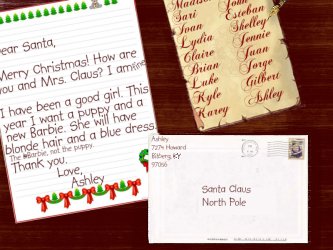 Dear Santa,
Merry Christmas! How are
you and Mrs. Claus? I am fine.
I have been a good girl. This
year I want a puppy and a
new Barbie. She will have
blonde hair and a blue dress.
The #Barbie, not the puppy.
Thank you.
Love,
Ashley
Madison
Sari
Joan
Lydia
Claire
Brian
Luke
Kyle
Karey
John
Esteban
Shelley
Jennie
Juan
Jorge
Gilbert
Ashley
Ashley
7274 Howard
Billberg, KY
97056
Santa Claus
North Pole